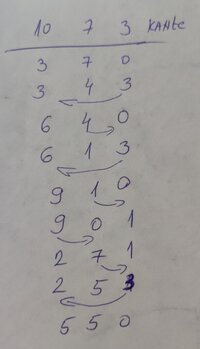 10 7 3
3 7 0
3 4 3
6 4 0
6 1 3
9 1 0
9 0 1
2 7 1
2 5 3
5 5 0